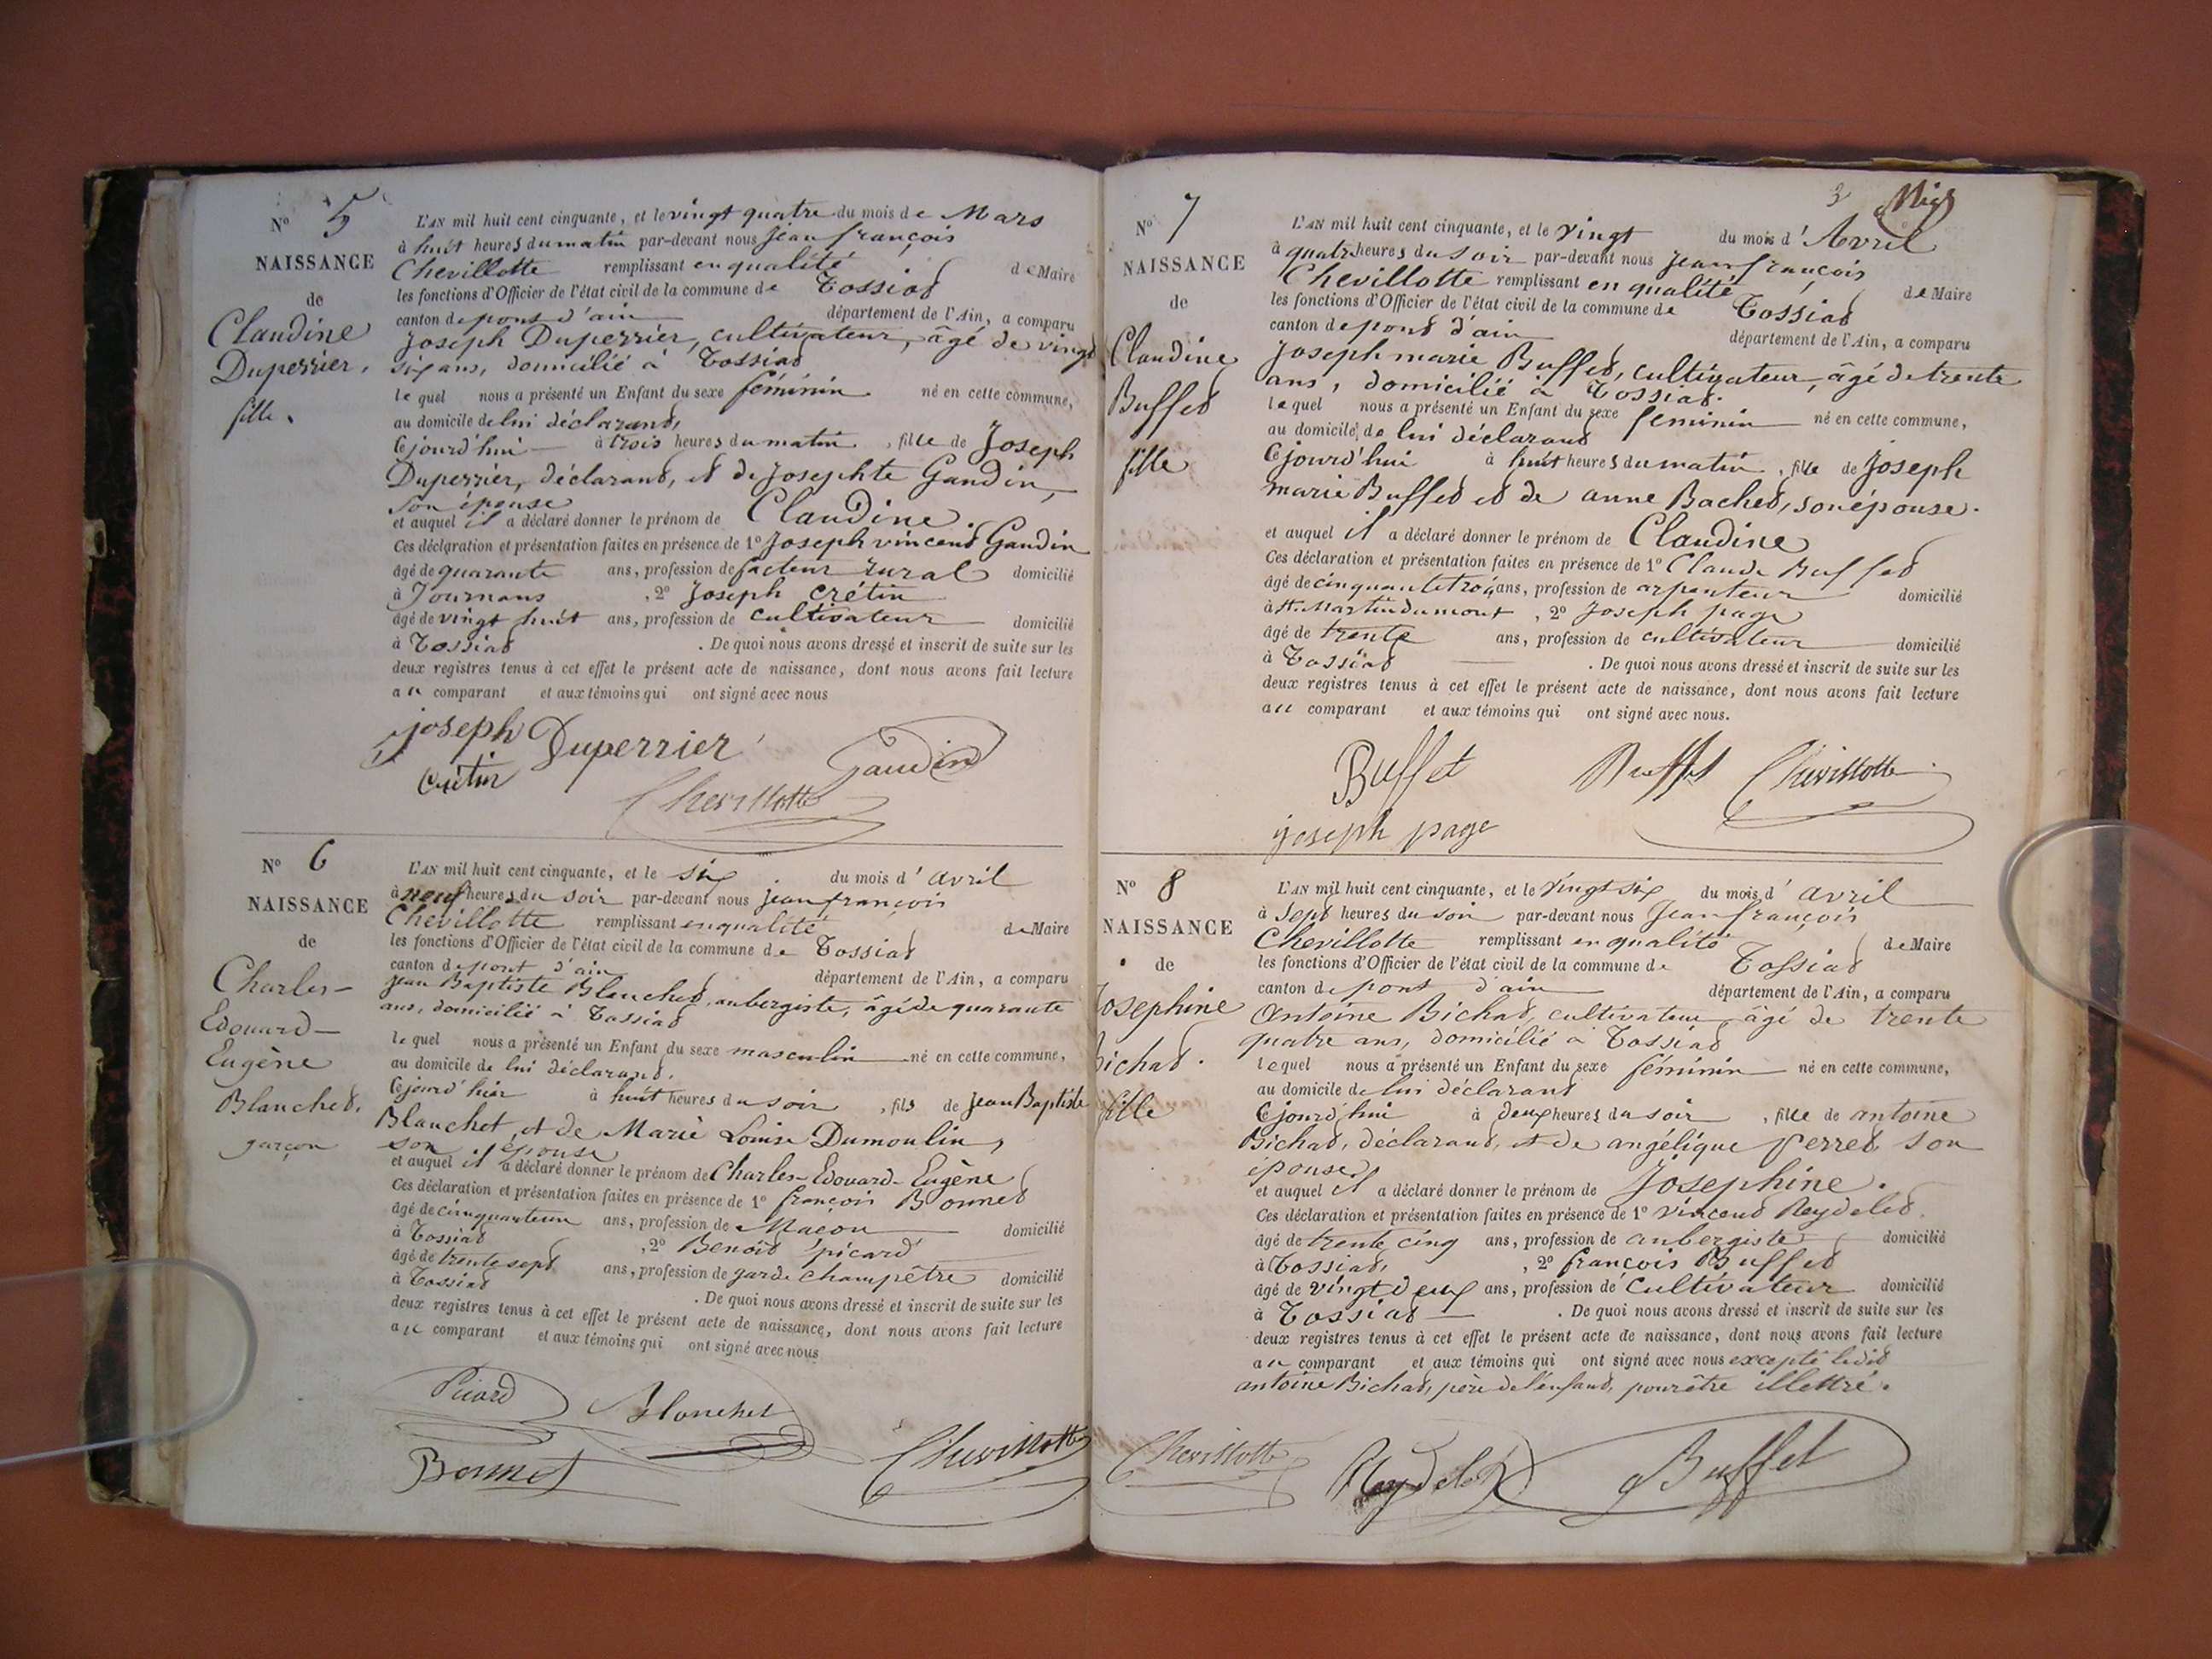 N° 5
NAISSANCE
de
Claudine
Duperrier,
fille.
L'AN mil huit cent cinquante, et le vingt quatre du mois de Mars
à huit heures du matin par-devant nous jean françois
Chevillotte remplissant en qualité de Maire
les fonctions d'Officier de l'état civil de la commune de Tossiat
canton de pont d'ain département de l'Ain, a comparu
Joseph Duperrier, cultivateur, âgé de vingt
six ans, domicilié à Tossiat
lequel nous a présenté un Enfant du sexe féminin né en cette commune,
au domicile de lui déclarant,
Cejourd'hui à trois heures du matin, fille de Joseph
Duperrier, déclarant, et de Josephte Gaudin,
son épouse
et auquel il a déclaré donner le prénom de Claudine.
Ces déclaration et présentation faites en présence de 1° Joseph vincent Gaudin
âgé de quarante ans, profession de facteur rural domicilié
à Journans, 2° Joseph Crétin
âgé de vingt huit ans, profession de cultivateur domicilié
à Tossiat. De quoi nous avons dressé et inscrit de suite sur les
deux registres tenus à cet effet le présent acte de naissance, dont nous avons fait lecture
au comparant et aux témoins qui ont signé avec nous
joseph Duperrier Gaudin
Crétin Chevillotte
N° 6
NAISSANCE
de
Charles-
Edouard-
Eugène
Blanchet.
garçon
L'AN mil huit cent cinquante, et le six du mois d'avril
à neuf heures du soir par-devant nous jean françois
Chevillotte remplissant en qualité de Maire
les fonctions d'Officier de l'état civil de la commune de Tossiat
canton de pont d'ain département de l'Ain, a comparu
jean Baptiste Blanchet, aubergiste, âgé de quarante
ans, domicilié à Tossiat
lequel nous a présenté un Enfant du sexe masculin né en cette commune,
au domicile de lui déclarant.
Cejourd'hui à huit heures du soir, fils de jean Baptiste
Blanchet, et de Marie Louise Dumoulin,
son épouse
et auquel il a déclaré donner le prénom de Charles-Edouard-Eugène
Ces déclaration et présentation faites en présence de 1° françois Bonnet
âgé de cinquanteun ans, profession de Maçon domicilié
à Tossiat, 2° Benoît picard
âgé de trente sept ans, profession de garde champêtre domicilié
à Tossiat. De quoi nous avons dressé et inscrit de suite sur les
deux registres tenus à cet effet le présent acte de naissance, dont nous avons fait lecture
au comparant et aux témoins qui ont signé avec nous
Picard Blanchet
Bonnet Chevillotte
3
N° 7
NAISSANCE
de
Claudine
Buffet
fille
L'AN mil huit cent cinquante, et le vingt du mois d'Avril
à quatre heures du soir par-devant nous jean françois
Chevillotte remplissant en qualité de Maire
les fonctions d'Officier de l'état civil de la commune de Tossiat
canton de pont d'ain département de l'Ain, a comparu
Joseph marie Buffet, cultivateur, âgé de trente
ans, domicilié à Tossiat.
lequel nous a présenté un Enfant du sexe feminin né en cette commune,
au domicile de lui déclarant
Cejourd'hui à huit heures du matin, fille de Joseph
marie Buffet et de anne Bachet, son épouse.
et auquel il a déclaré donner le prénom de Claudine
Ces déclaration et présentation faites en présence de 1° Claude Buffet
âgé de cinquante trois ans, profession de arpenteur domicilié
à St. Martin du mont, 2° Joseph page
âgé de trente ans, profession de cultivateur domicilié
à Tossiat. De quoi nous avons dressé et inscrit de suite sur les
deux registres tenus à cet effet le présent acte de naissance, dont nous avons fait lecture
au comparant et aux témoins qui ont signé avec nous.
Buffet Buffet Chevillotte
joseph page
N° 8
NAISSANCE
de
Josephine
Bichat.
fille
L'AN mil huit cent cinquante, et le vingt six du mois d'avril
à sept heures du soir par-devant nous Jean françois
Chevillotte remplissant en qualité de Maire
les fonctions d'Officier de l'état civil de la commune de Tossiat
canton de pont d'ain département de l'Ain, a comparu
Antoine Bichat, cultivateur, âgé de trente
quatre ans, domicilié à Tossiat
lequel nous a présenté un Enfant du sexe féminin né en cette commune,
au domicile de lui déclarant
Cejourd'hui à deux heures du soir, fille de antoine
Bichat, déclarant, et de angélique perret son
épouse
et auquel il a déclaré donner le prénom de Josephine.
Ces déclaration et présentation faites en présence de 1° vincent Reydelet.
âgé de trente cinq ans, profession de aubergiste domicilié
à Tossiat, 2° françois Buffet
âgé de vingt deux ans, profession de cultivateur domicilié
à Tossiat. De quoi nous avons dressé et inscrit de suite sur les
deux registres tenus à cet effet le présent acte de naissance, dont nous avons fait lecture
au comparant et aux témoins qui ont signé avec nous excepté ledit
antoine Bichat, père de l'enfant, pour être illettré.
Chevillotte Reydelet Buffet